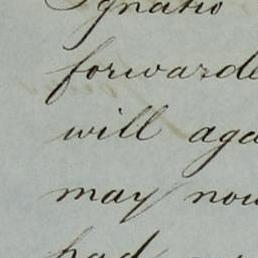 Ignatio
forwarde
will aga
may now
had